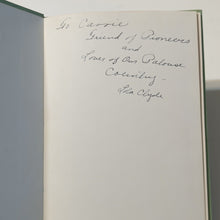 To Carrie
Friend of Pioneers
and
Lover of Our Palouse
Country -
Lola Clyde